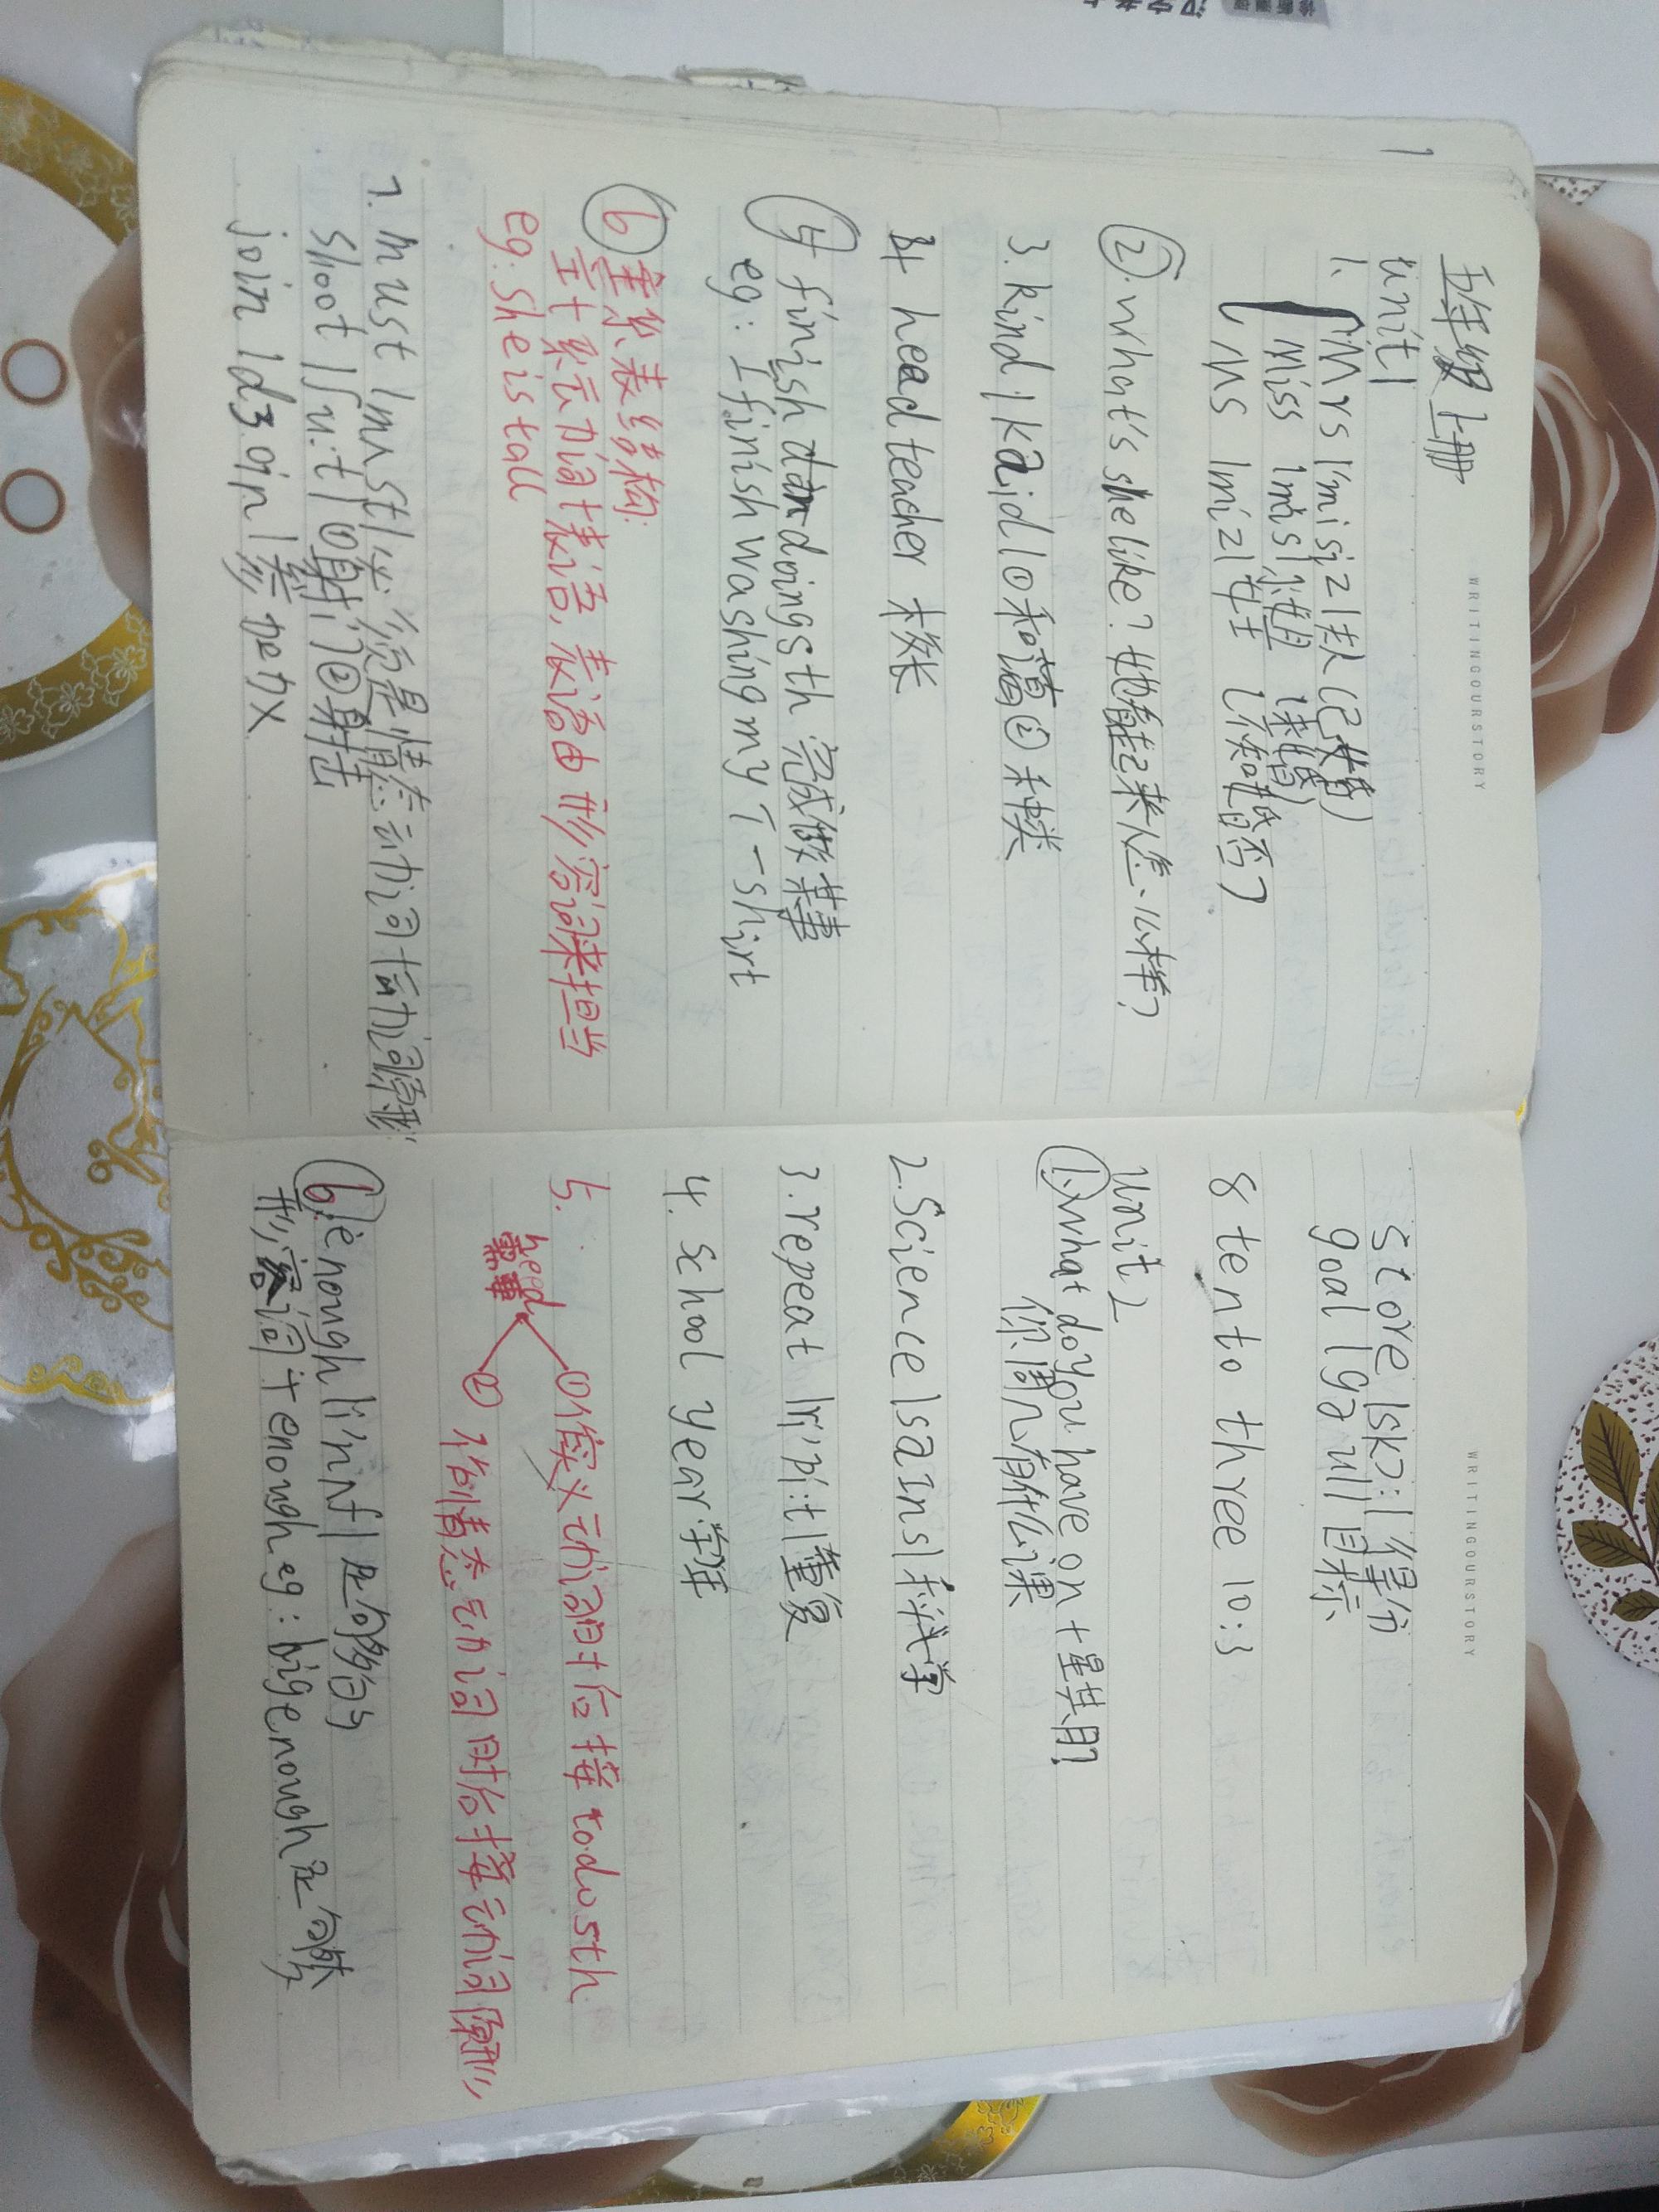 WRITINGOURSTORY
五年级上册
unit1
1. Mrs |'misiz| 夫人(已婚)
Miss |mis| 小姐 (未婚)
Ms |miz| 女士 (不知婚否)
②.What's she like? 她看起来怎么样?
3. kind |kaid| ①和蔼 ② 种类
4 head teacher 校长
5 finish doing sth 完成做某事
eg: I finish washing my T-shirt
6 主系表结构:
主+系动词+表语,表语由形容词来担当
eg. She is tall
7. must |mʌst| 必须是情态动词+动词原形
shoot |ʃu:t| ①射门②射击
join |dʒoin| 参加加入
WRITINGOURSTORY
score |skɔ:| 得分
goal |gəull| 目标
8 ten to three 10:3
unit 2
1.What do you have on + 星期?
你周几有什么课
2.Science |saIns| 科学
3. repeat |ri'pi:t| 重复
4. school year 学年
5.
need
需要
①作实义动词时后接 to do sth
② 作情态动词时后接动词原形
6. enough |i'nʌf| 足够的
形容词 + enough eg: big enough 足够大